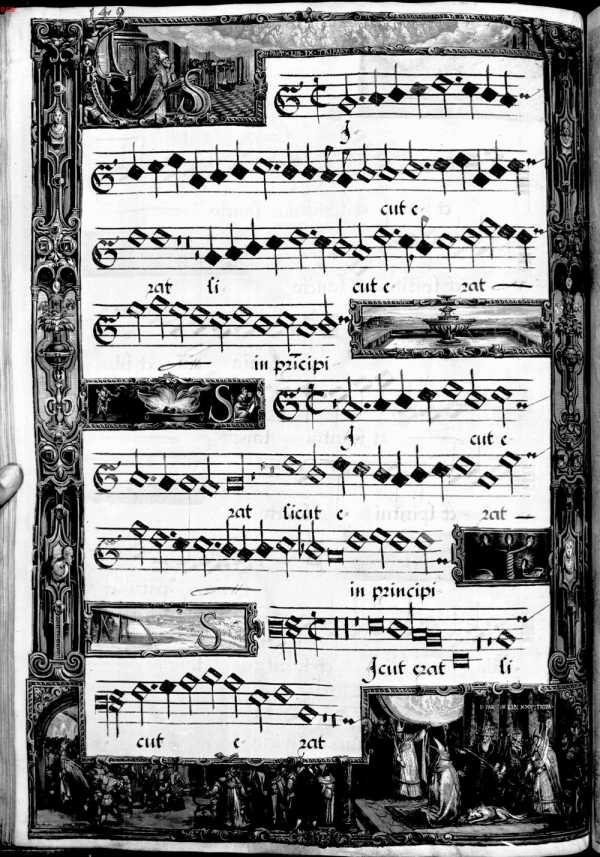 149
S
J
cut e
rat li cut e rat
in prīcipi
S
J cut e
rat licut e rat
in principi
S
Jcut erat li
cut e rat